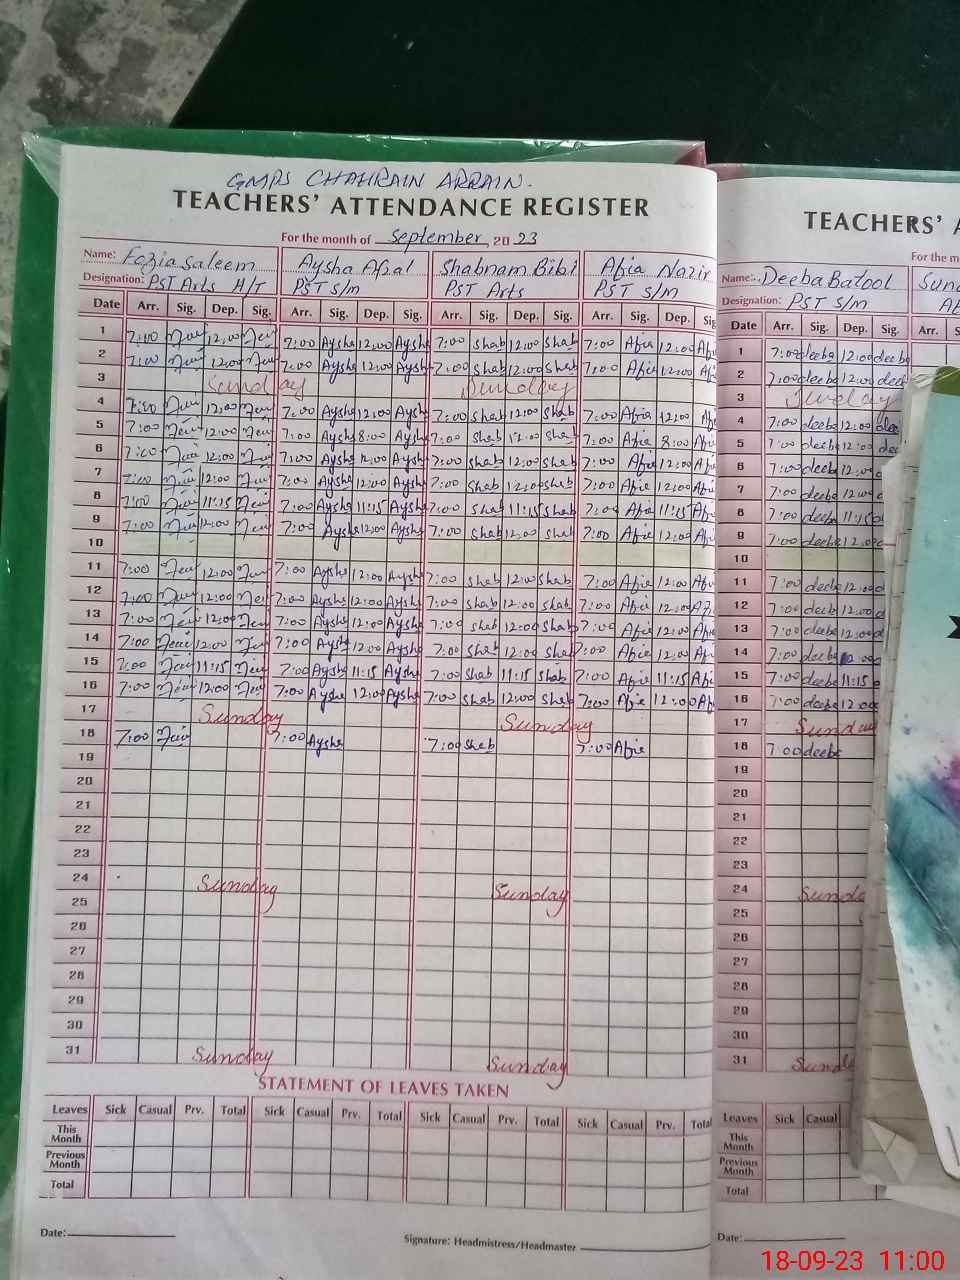 GMPS CHAHRAIN ARRAIN.
TEACHERS' ATTENDANCE REGISTER
For the month of September, 2023
Name: Fozia Saleem Aysha Afzal Shabnam Bibi Afia Nazir
Designation: PST Arts H/T PST S/M PST Arts PST S/M
Date Arr. Sig. Dep. Sig. Arr. Sig. Dep. Sig. Arr. Sig. Dep. Sig. Arr. Sig. Dep. Sig
1 7:00 12:00 7:00 Aysha 12:00 Aysha 7:00 Shab 12:00 Shab 7:00 Afia 12:00 Af
2 7:00 12:00 7:00 Aysha 12:00 Aysha 7:00 Shab 12:00 Shab 7:00 Afia 12:00 Af
3 Sunday Sunday
4 7:00 12:00 7:00 Aysha 12:00 Aysha 7:00 Shab 12:00 Shab 7:00 Afia 12:00 Af
5 7:00 12:00 7:00 Aysha 8:00 Aysha 7:00 Shab 12:00 Shab 7:00 Afia 8:00 Af
6 7:00 12:00 7:00 Aysha 12:00 Aysha 7:00 Shab 12:00 Shab 7:00 Afia 12:00 Af
7 7:00 12:00 7:00 Aysha 12:00 Aysha 7:00 Shab 12:00 Shab 7:00 Afia 12:00 Afi
8 7:00 11:15 7:00 Aysha 11:15 Aysha 7:00 Shab 11:15 Shab 7:00 Afia 11:15 Af
9 7:00 12:00 7:00 Aysha 12:00 Aysha 7:00 Shab 12:00 Shab 7:00 Afia 12:00 Af
10
11 7:00 12:00 7:00 Aysha 12:00 Aysha 7:00 Shab 12:00 Shab 7:00 Afia 12:00 Afi
12 7:00 12:00 7:00 Aysha 12:00 Aysha 7:00 Shab 12:00 Shab 7:00 Afia 12:00 Afi
13 7:00 12:00 7:00 Aysha 12:00 Aysha 7:00 Shab 12:00 Shab 7:00 Afia 12:00 Afi
14 7:00 12:00 7:00 Aysha 12:00 Aysha 7:00 Shab 12:00 Shab 7:00 Afia 12:00 Af
15 7:00 11:15 7:00 Aysha 11:15 Aysha 7:00 Shab 11:15 Shab 7:00 Afia 11:15 Afi
16 7:00 12:00 7:00 Aysha 12:00 Aysha 7:00 Shab 12:00 Shab 7:00 Afia 12:00 Af
17 Sunday Sunday
18 7:00 7:00 Aysha 7:00 Shab 7:00 Afia
19
20
21
22
23
24 Sunday Sunday
25
26
27
28
29
30
31 Sunday Sunday
STATEMENT OF LEAVES TAKEN
Leaves Sick Casual Prv. Total Sick Casual Prv. Total Sick Casual Prv. Total Sick Casual Prv. Total
This Month
Previous Month
Total
Date:
Signature: Headmistress/Headmaster
TEACHERS' A
For the m
Name: Deeba Batool
Designation: PST S/M
Date Arr. Sig. Dep. Sig. Arr. S
1 7:00 deeba 12:00 deeba
2 7:00 deeba 12:00 dee
3 Sunday
4 7:00 deeba 12:00 dee
5 7:00 deeba 12:00 dee
6 7:00 deeba 12:00
7 7:00 deeba 12:00
8 7:00 deeba 11:15
9 7:00 deeba 12:00
10
11 7:00 deeba 12:00
12 7:00 deeba 12:00
13 7:00 deeba 12:00
14 7:00 deeba 12:00
15 7:00 deeba 11:15
16 7:00 deeba 12:00
17 Sunday
18 7:00 deeba
19
20
21
22
23
24 Sunda
25
26
27
28
29
30
31 Sunda
Leaves Sick Casual
This Month
Previous Month
Total
Date:
18-09-23 11:00